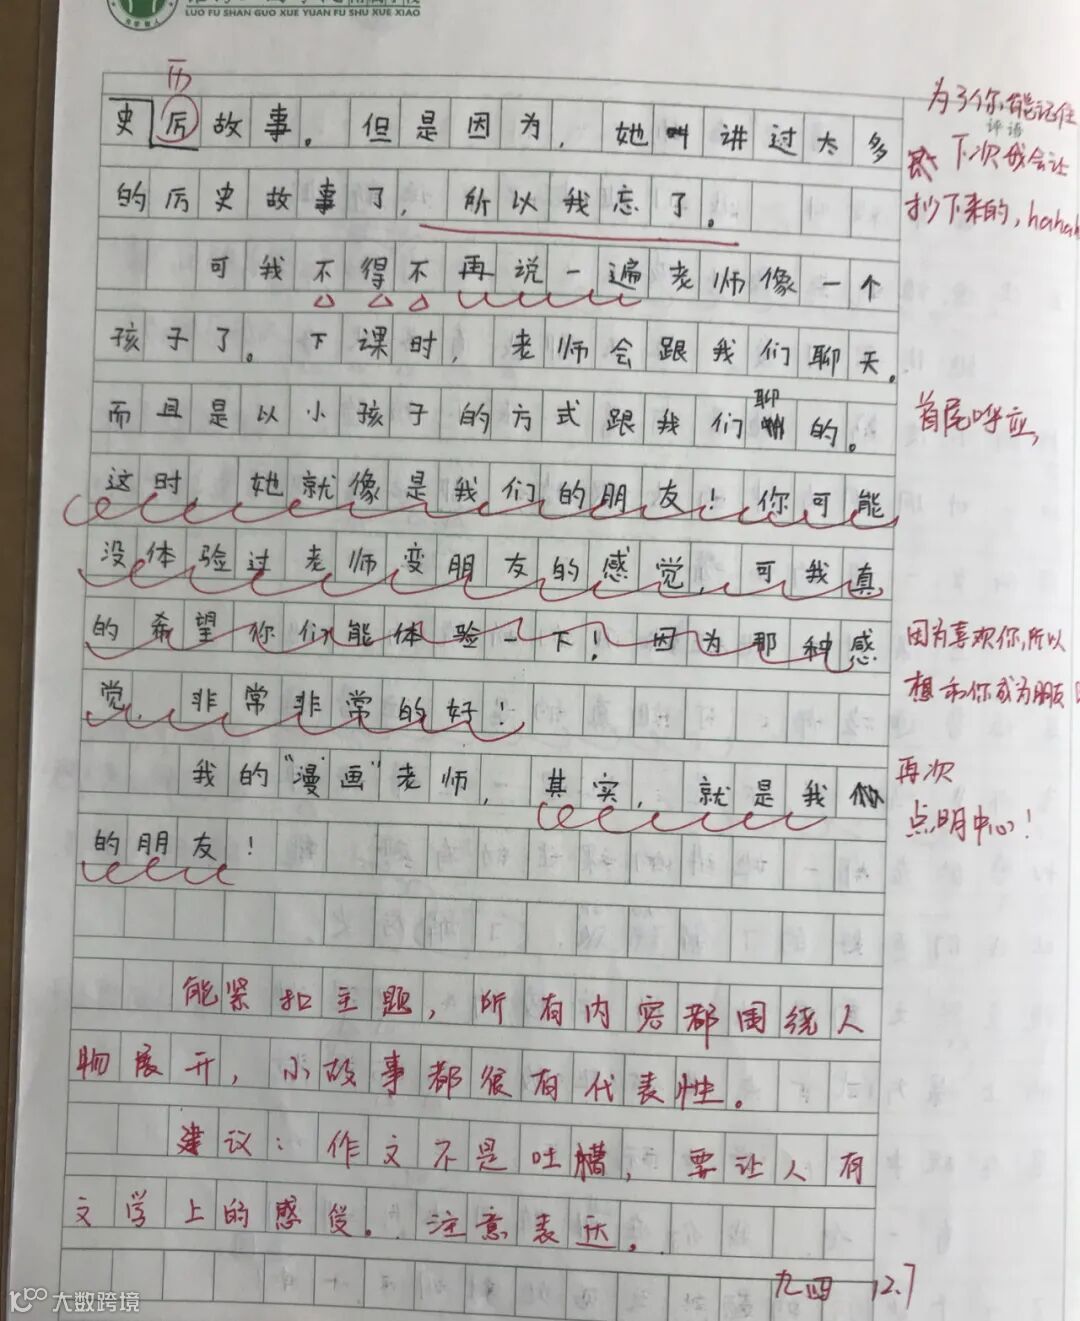 LUO FU SHAN GUO XUE YUAN FU SHU XUE XIAO
历
史厉故事。但是因为，她讲过太多
的厉史故事了，所以我忘了。
为了你能记住
评语
下次我会让
抄下来的，haha
可我不得不再说一遍老师像一个
孩子了。下课时，老师会跟我们聊天。
聊
而且是以小孩子的方式跟我们的。
首尾呼应，
这时她就像是我们的朋友！你可能
没体验过老师变朋友的感觉，可我真
的希望你们能体验一下！因为那种感
因为喜欢你，所以
觉，非常非常的好！
想和你成为朋友
我的“漫画”老师，其实，就是我们
再次
点明中心！
的朋友！
能紧扣主题，所有内容都围绕人
物展开，小故事都很有代表性。
建议：作文不是吐槽，要让人有
文学上的感受。注意表达。
九四 12.7
大数跨境